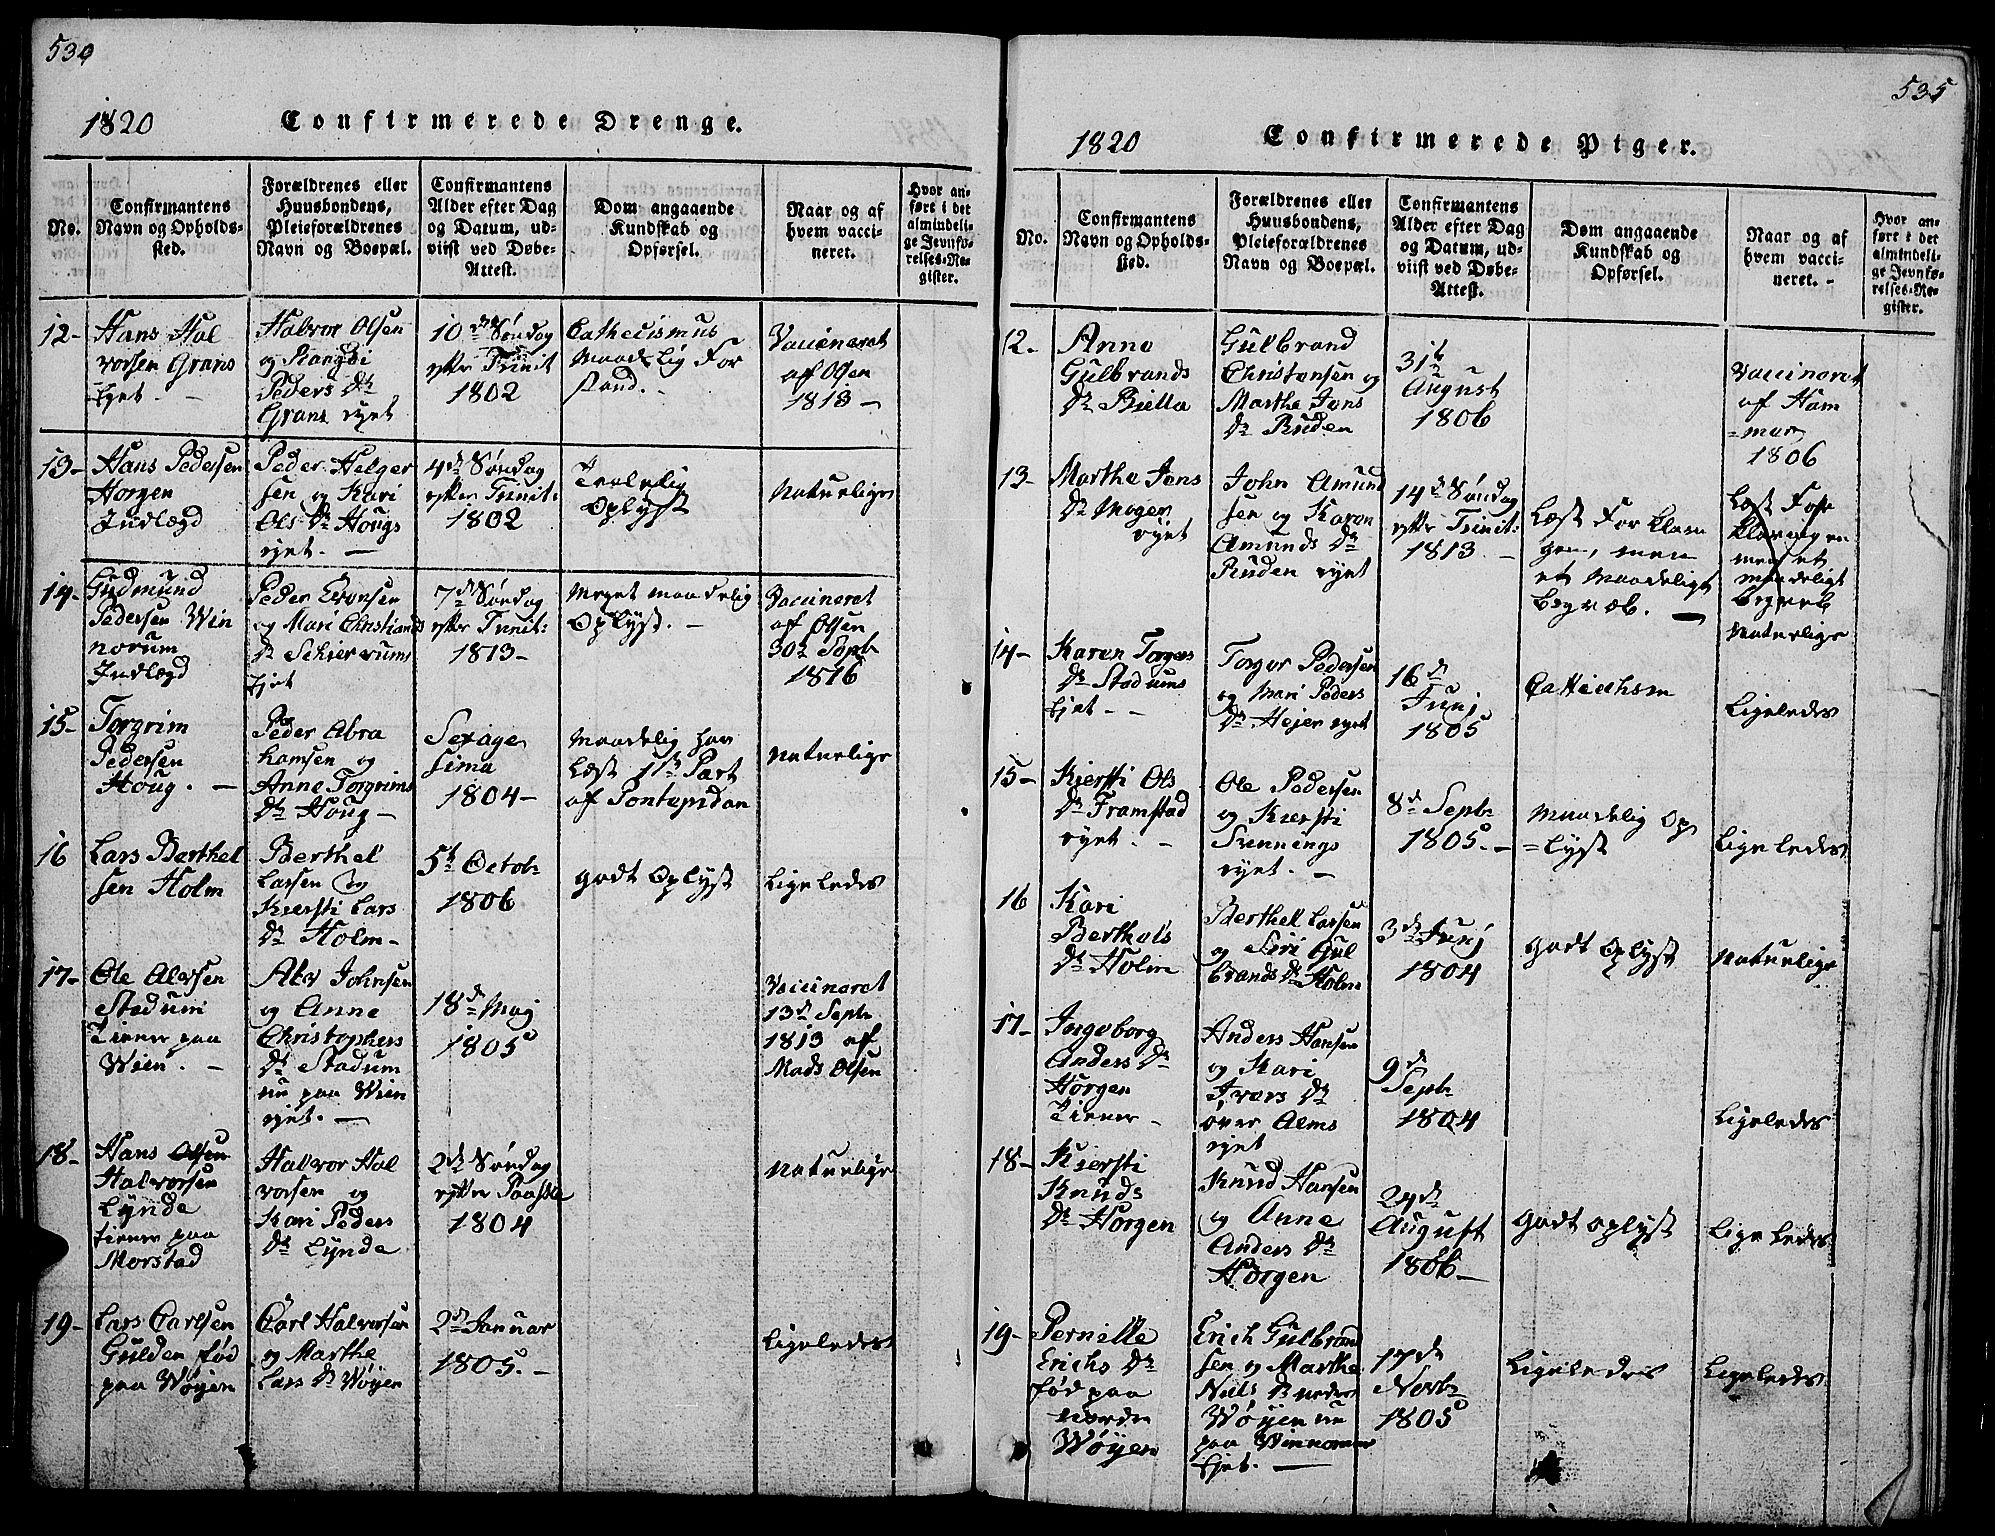 530
1820 Confirmerede Drenge.
No.
Confirmantens
Navn og Opholds-
sted.
Forældrenes eller
Huusbondens,
Pleieforældrenes
Navn og Boepæl.
Confirmantens
Alder efter Dag
og Datum, ud-
viist ved Døbe-
Attest.
Dom angaaende
Kundskab og
Opførsel.
Naar og af
hvem vacci-
neret.
Hvor an-
ført i det
almindeli-
ge Jevnfø-
relses-Re-
gister.
12-
Hans Hal
vorsen Grans
Ejet. -
Halvor Olsen
og Rangdi
Peders Dr
Grans ejet
10de Søndag
efter Trinit
1802
Cathecismus
Maadelig For
stand. -
Vaccineret
af Olsen
1813 -
13-
Hans Pedersen
Horgen
Indlægd
Peder Helger
sen og Kari
Ols Dr Hougs
ejet. -
4de Søndag
efter Trinit:
1802
Tvelelig
Oplyst
Naturlige
14-
Gudmund
Pedersen Win
norum
Indlægd
Peder Evensen
og Mari Christians
Dr Schierrums
Ejet
7de Søndag
efter Trinit:
1813-
Meget maadelig
Oplyst. -
Vaccineret
af Olsen
30te Septb
1816
15-
Torgrim
Pedersen
Houg. -
Peder Abra
hamsen og
Anne Torgrims
Dr Houg -
Sexage
sima
1804-
Maadelig har
Læst 1ste Part
af Pontopidan
Naturlige
16
Lars Berthel
sen Holm
Berthel
Larsen og
Kiersti Lars
Dr Holm-
5te Octob:
1806
godt Oplyst
Ligeledes
17-
Ole Alvsen
Stadum
Tiener paa
Wien. -
Alv Johnsen
og Anne
Christophers
Dr Stadum
nu paa Wien
ejet. -
18de Maj
1805
Vaccineret
13de Septb
1813 af
Mads Olsen
18-
Hans Olsen
Halvorsen
Lynde
tiener paa
Morstad
Halvor Hal
vorsen og
Kari Peders
Dr Lynde
2de Søndag
efter Paaske
1804
Naturlige
19-
Lars Carlsen
Gulden fød
paa Wøyen
Carl Halvorsen
og Marthe
Lars Dr Wøyen
2de Januar
1805. -
Ligeledes
535
1820 Confirmerede Piger.
No.
Confirmantens
Navn og Opholds-
sted.
Forældrenes eller
Huusbondens,
Pleieforældrenes
Navn og Boepæl.
Confirmantens
Alder efter Dag
og Datum, ud-
viist ved Døbe-
Attest.
Dom angaaende
Kundskab og
Opførsel.
Naar og af
hvem vacci-
neret. -
Hvor an-
ført i det
almindeli-
ge Jevnfø-
relses-Re-
gister.
12-
Anne
Gulbrands
Dr Biella
Gulbrand
Christensen og
Marthe Jens
Dr Ruden
31te
August
1806
Vaccineret
af Ham
=mer
1806
13-
Marthe Jens
Dr Mogen
ejet
John Amund
sen og Karen
Amunds Dr
Ruden ejet
14de Søndag
efter Trinit:
1813 -
Læst Forklarin
gen, men
et maadeligt
begreb. -
Læst For
klaringen
men et
maadeligt
begreb
Naturlige
14-
Karen Torgers
Dr Stadums
Ejet. -
Torger Pedersen
og Mari Peders
Dr Hejer ejet
16de
Junj
1805
Cattechism
Ligeledes
15-
Kiersti Ols
Dr Framstad
ejet. -
Ole Pedersen
og Kiersti
Svennings
ejet. -
8de Septb
1805. -
Maadelig Op
=lyst
Ligeledes
16
Kari
Berthels
Dr Holm
Berthel Larsen
og Siri Gul
brands Dr Holm
3de Junj
1804
godt Oplyst
Naturlige
17-
Ingeborg
Anders Dr
Horgen
Tiener -
Anders Hansen
og Kari
Ivers Dr
over Alms
ejet
9de
Septb
1804
Ligeledes
18-
Kiersti
Knuds
Dr Horgen
Knud Hansen
og Anne
Anders Dr
Horgen
24de
August
1806 -
godt oplyst
Ligeledes
19-
Pernille
Erichs Dr
fød paa
nordre
Wøyen
Erich Gulbrand
sen og Marthe
Niels Dr neder
Wøyen nu
paa Winnorum
Ejet. -
17de
Novbr
1805
Ligeledes
Ligeledes